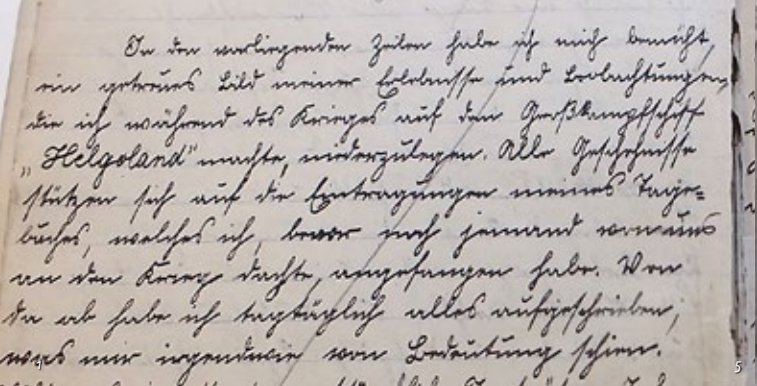 In den vorliegenden Zeilen habe ich mich bemüht,
ein getreues Bild meiner Erlebnisse und Beobachtungen,
die ich während des Krieges auf dem Großkampfschiff
„Helgoland" machte, niederzulegen. Alle Geschehnisse
stützen sich auf die Eintragungen meines Tage=
buches, welches ich, bevor noch jemand von uns
an den Krieg dachte, angefangen habe. Von
da ab habe ich tagtäglich alles aufgeschrieben,
was mir irgendwie von Bedeutung schien.
5